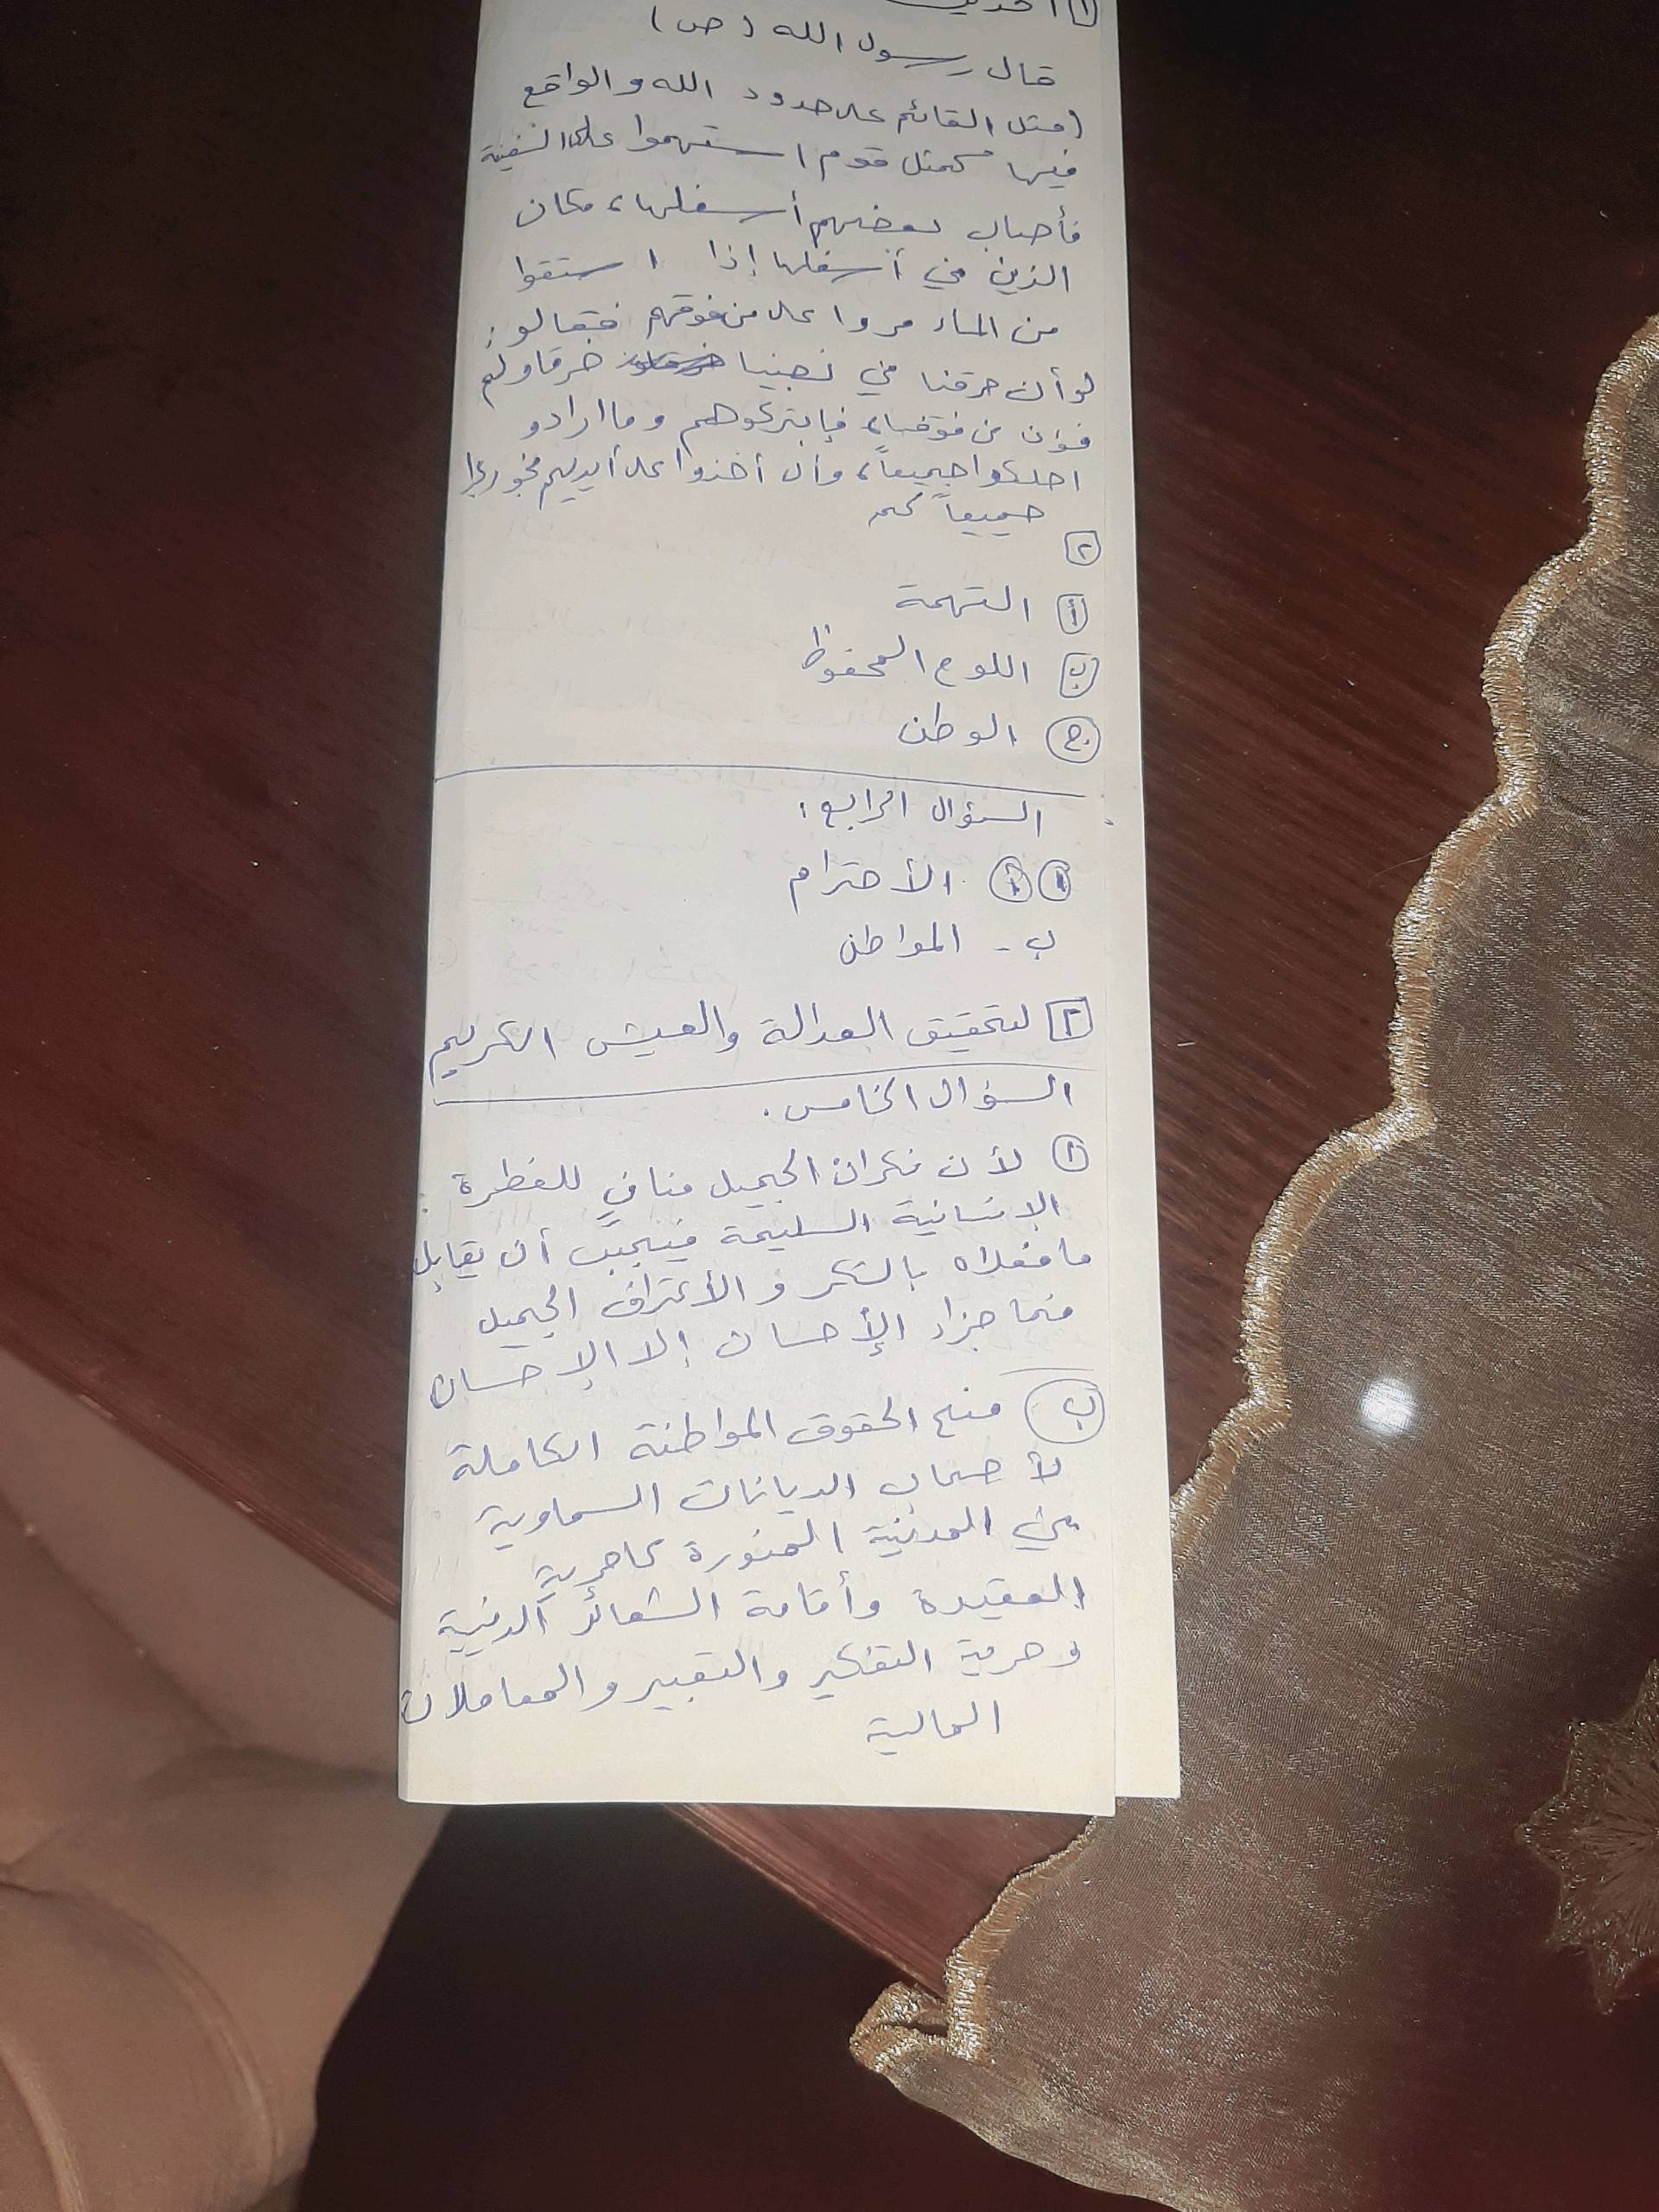 ١ الحديث
قال رسول الله (ص)
(مثل القائم على حدود الله والواقع
فيها كمثل قوم استهموا على السفينة
فأصاب بعضهم أسفلها، فكان
الذين في أسفلها إذا استقوا
من الماء مروا على من فوقهم فقالو:
لو أن خرقنا في نصيبنا خرقا ولم
من فوقنا، يتركوهم وما ارادو
اهلكوا جميعاً، وأن أخذوا على أيديهم
جميعاً
٢
أ التهمة
ب اللوح المحفوظ
ج الوطن
السؤال الرابع:
١ أ الأحترام
ب - المواطن
٢ لتحقيق العدالة والعيش الكريم
السؤال الخامس.
١ لأن نكران الجميل منافٍ للفطرة
الإنسانية السليمة فيجب أن يقابل
ما فعلاه بالشكر والأعتراف الجميل
فما جزاء الإحسان إلا الإحسان
ب منح الحقوق المواطنة الكاملة
لأصحاب الديانات السماوية
في المدينة المنورة كاحرية
العقيدة وأقامة الشعائر الدينية
وحرية التفكير والتعبير والمعاملات
المالية